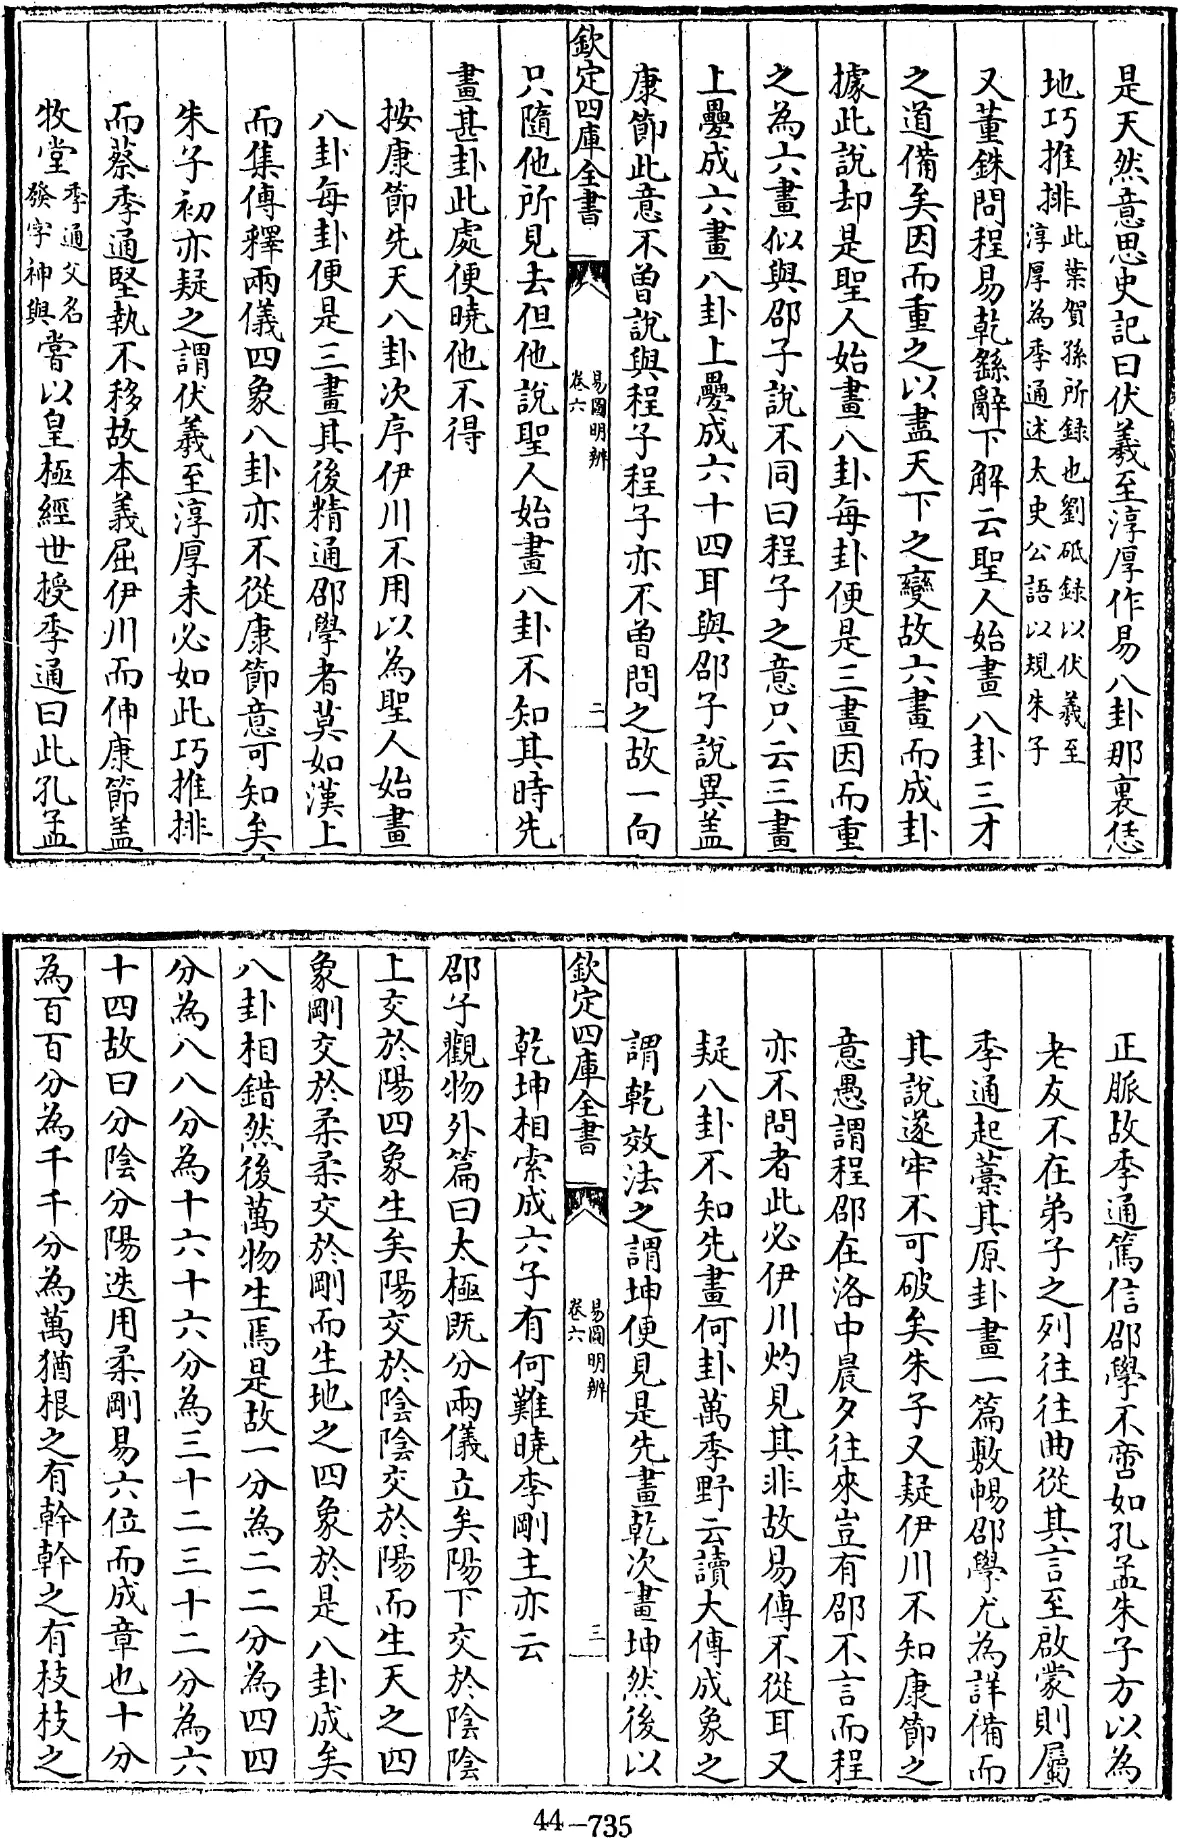 是天然意思史記曰伏羲至淳厚作易八卦那裏恁
地巧推排此葉賀孫所録也劉砥録以伏羲至淳厚為季通述太史公語以規朱子
又董銖問程易乾繇辭下解云聖人始畫八卦三才
之道備矣因而重之以盡天下之變故六畫而成卦
據此說却是聖人始畫八卦每卦便是三畫因而重
之為六畫似與邵子說不同曰程子之意只云三畫
上疊成六畫八卦上疊成六十四耳與邵子說異盖
康節此意不曾說與程子程子亦不曾問之故一向
欽定四庫全書
易圖明辨
卷六
二
只隨他所見去但他說聖人始畫八卦不知其時先
畫甚卦此處便曉他不得
按康節先天八卦次序伊川不用以為聖人始畫
八卦每卦便是三畫其後精通邵學者莫如漢上
而集傳釋兩儀四象八卦亦不從康節意可知矣
朱子初亦疑之謂伏羲至淳厚未必如此巧推排
而蔡季通堅執不移故本義屈伊川而伸康節盖
牧堂季通父名發字神與嘗以皇極經世授季通曰此孔孟
正脈故季通篤信邵學不啻如孔孟朱子方以為
老友不在弟子之列往往曲從其言至啟蒙則屬
季通起藁其原卦畫一篇敷暢邵學尤為詳備而
其說遂牢不可破矣朱子又疑伊川不知康節之
意愚謂程邵在洛中晨夕往來豈有邵不言而程
亦不問者此必伊川灼見其非故易傳不從耳又
疑八卦不知先畫何卦萬季野云讀大傳成象之
謂乾效法之謂坤便見是先畫乾次畫坤然後以
欽定四庫全書
易圖明辨
卷六
三
乾坤相索成六子有何難曉李剛主亦云
邵子觀物外篇曰太極既分兩儀立矣陽下交於陰陰
上交於陽四象生矣陽交於陰陰交於陽而生天之四
象剛交於柔柔交於剛而生地之四象於是八卦成矣
八卦相錯然後萬物生焉是故一分為二二分為四四
分為八八分為十六十六分為三十二三十二分為六
十四故曰分陰分陽迭用柔剛易六位而成章也十分
為百百分為千千分為萬猶根之有幹幹之有枝枝之
44-735